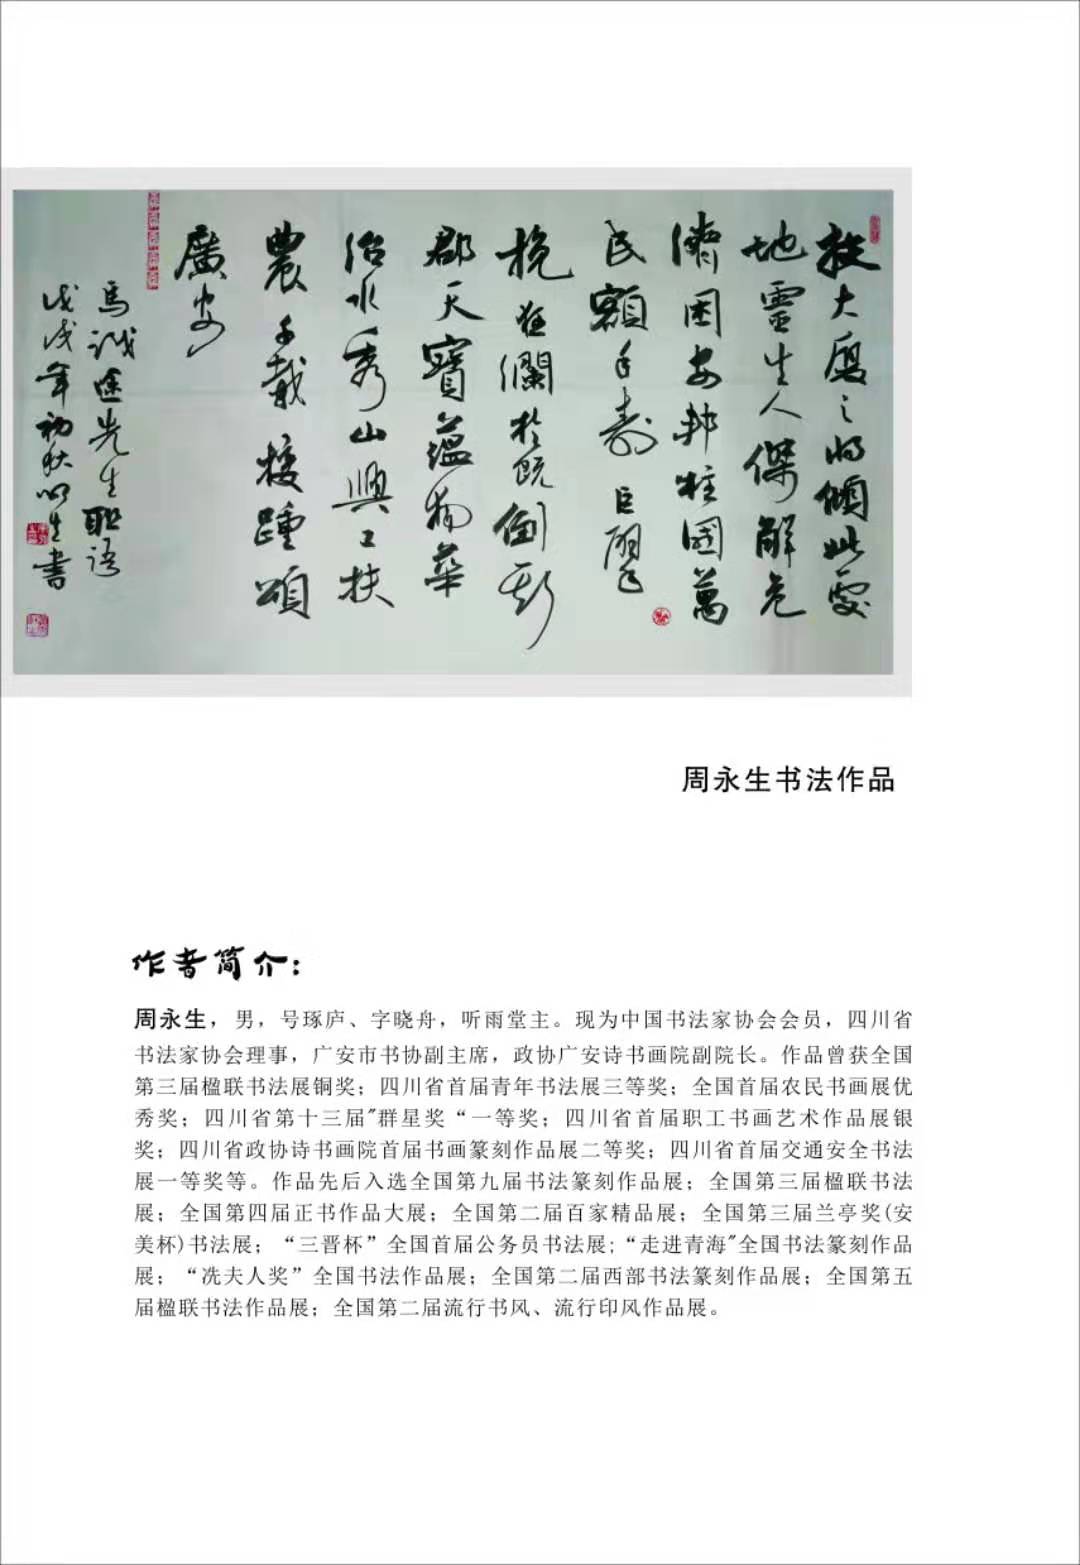 扶大廈之將傾此處
地靈生人傑解危
濟困安邦柱國萬
民額手壽巨擘
挽狂瀾於既倒斯
郡天寶蘊物華
治水秀山興工扶
農千載接踵頌
廣安
馬識途先生聯語
戊戌年初秋永生書
周永生书法作品
作者简介：
周永生，男，号琢庐、字晓舟，听雨堂主。现为中国书法家协会会员，四川省
书法家协会理事，广安市书协副主席，政协广安诗书画院副院长。作品曾获全国
第三届楹联书法展铜奖；四川省首届青年书法展三等奖；全国首届农民书画展优
秀奖；四川省第十三届"群星奖“一等奖；四川省首届职工书画艺术作品展银
奖；四川省政协诗书画院首届书画篆刻作品展二等奖；四川省首届交通安全书法
展一等奖等。作品先后入选全国第九届书法篆刻作品展；全国第三届楹联书法
展；全国第四届正书作品大展；全国第二届百家精品展；全国第三届兰亭奖(安
美杯)书法展；“三晋杯”全国首届公务员书法展;“走进青海"全国书法篆刻作品
展；“冼夫人奖”全国书法作品展；全国第二届西部书法篆刻作品展；全国第五
届楹联书法作品展；全国第二届流行书风、流行印风作品展。